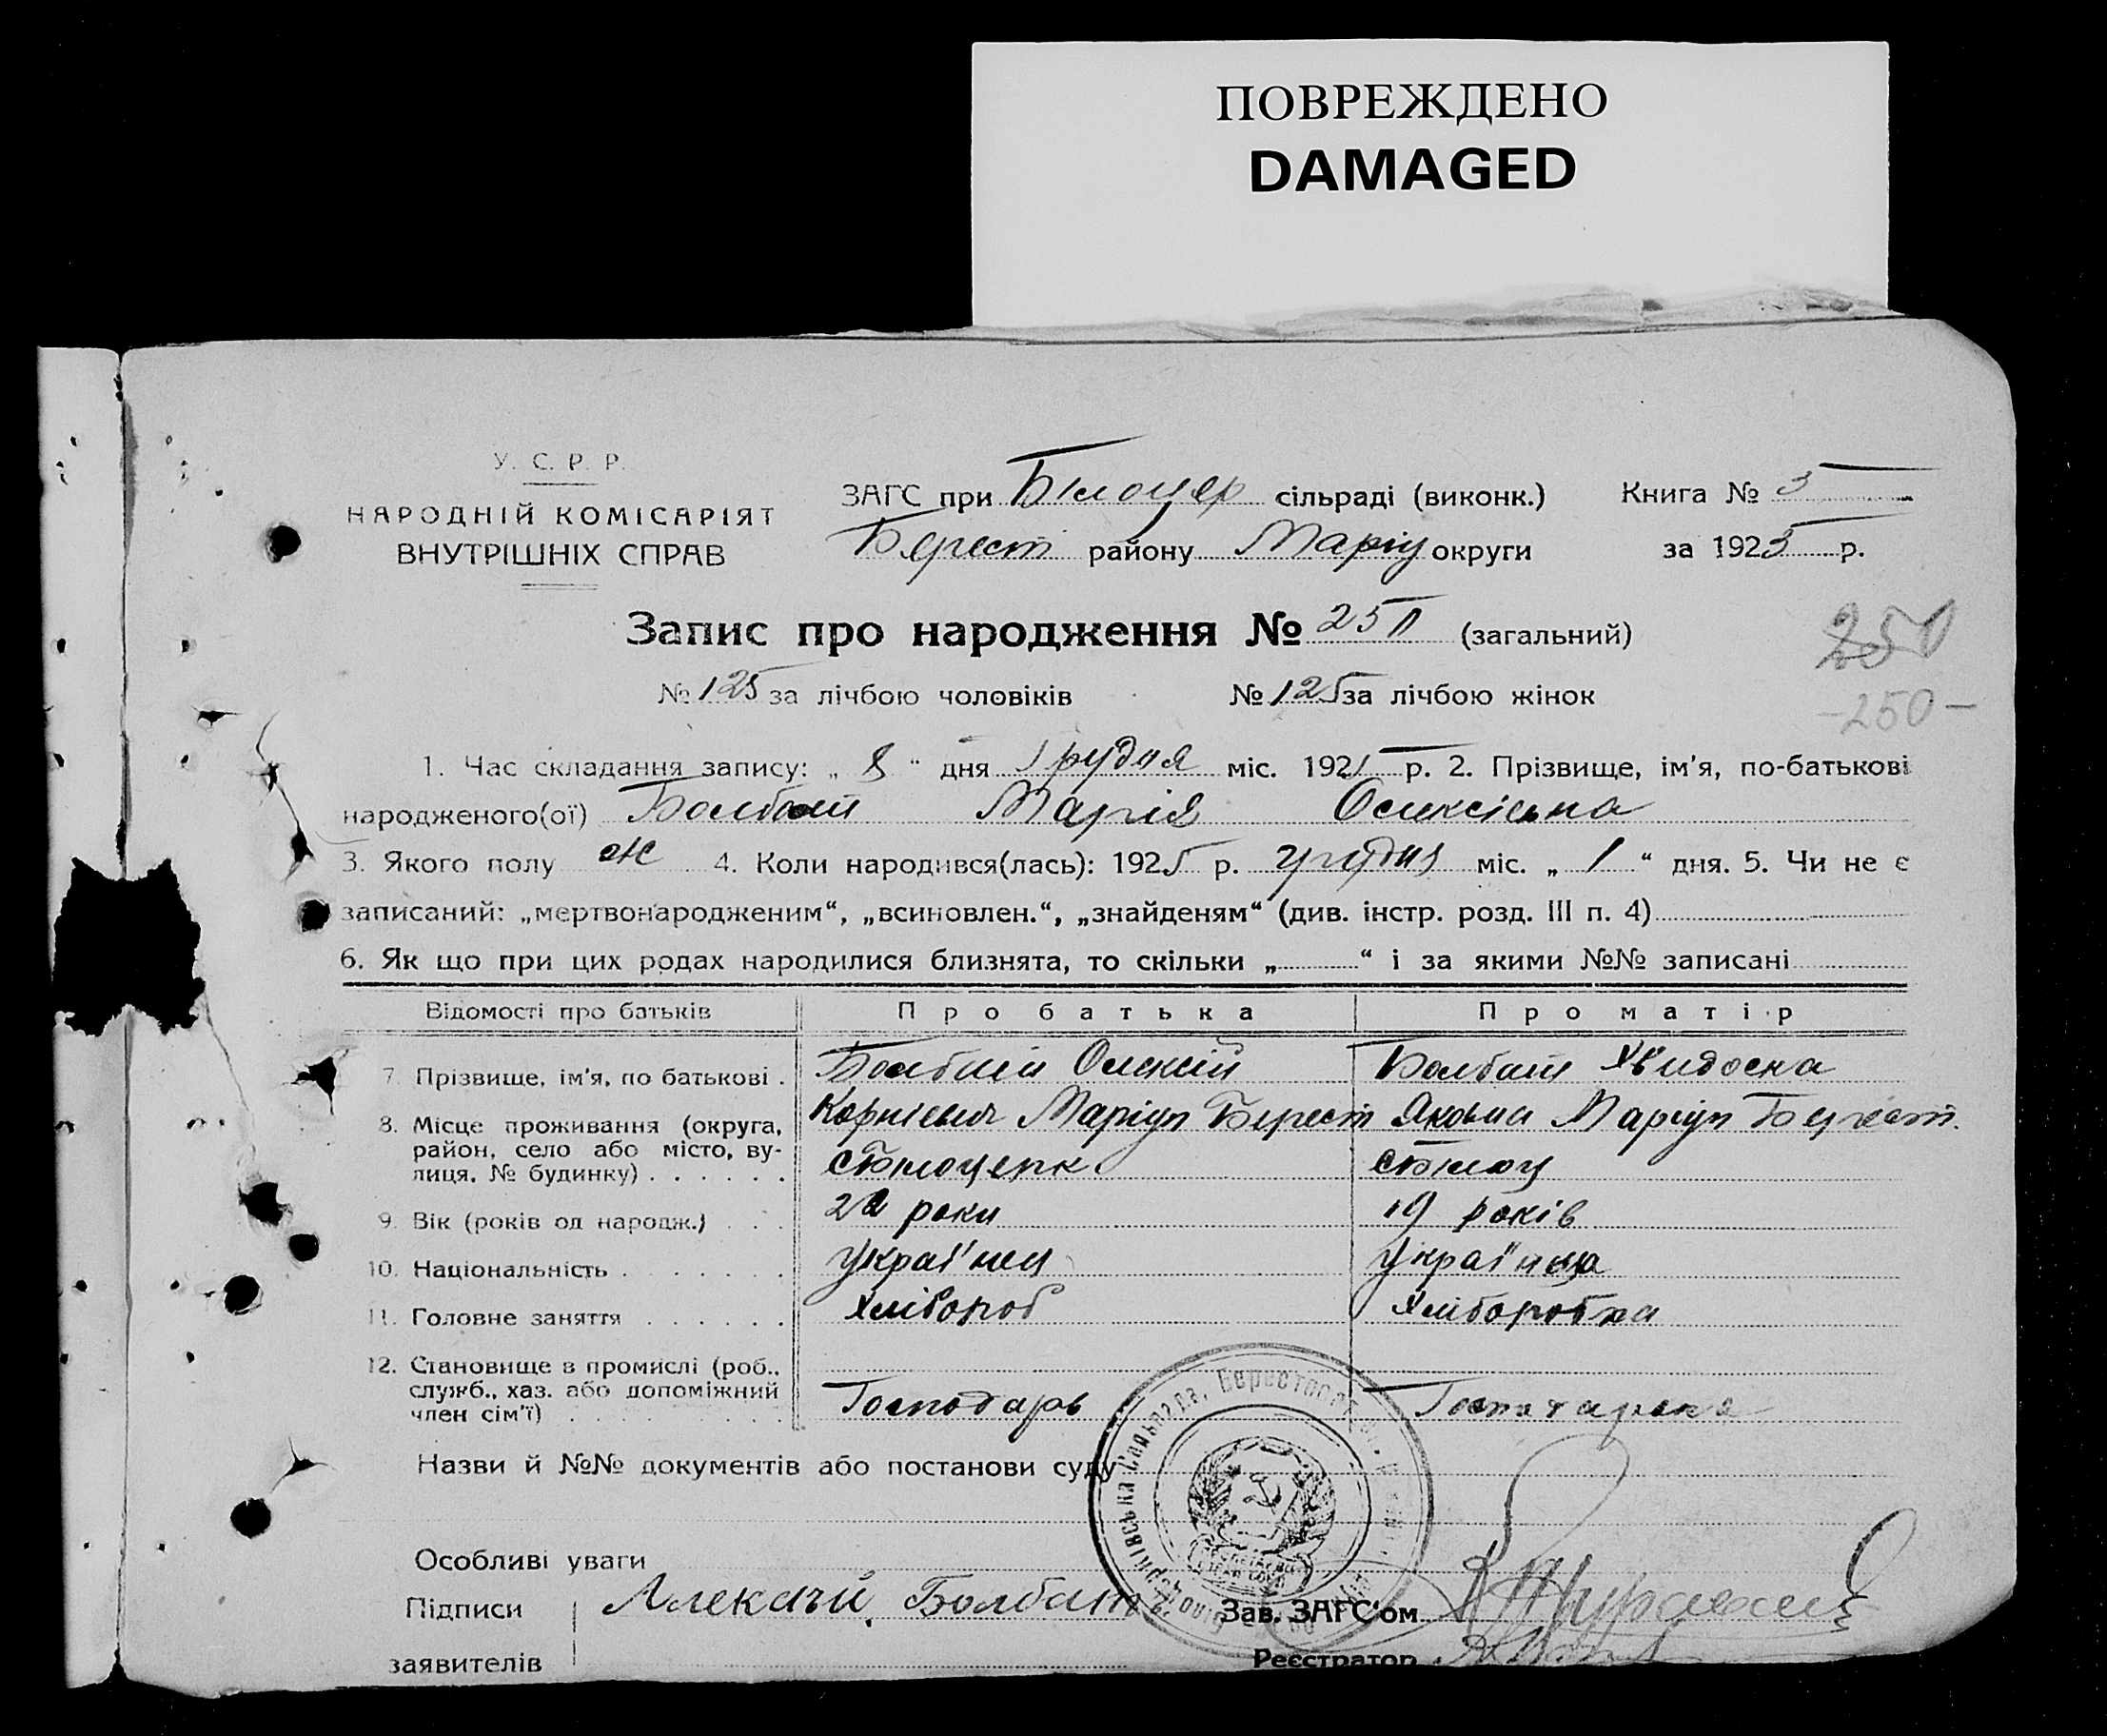 ПОВРЕЖДЕНО
DAMAGED
У. С. Р. Р.
НАРОДНІЙ КОМІСАРІЯТ
ВНУТРІШНІХ СПРАВ
ЗАГС при Білоцер сільраді (виконк.) Книга № 5
Берест району Маріу округи за 1925 р.
Запис про народження № 250 (загальний)
250
№ 125 за лічбою чоловіків № 125 за лічбою жінок
-250-
1. Час складання запису: „ 8 “ дня Грудня міс. 1925 р. 2. Прізвище, ім'я, по-батькові
народженого(ої) Болбат Марія Олексієвна
3. Якого полу ж 4. Коли народився(лась): 1925 р. грудня міс. „ 1 “ дня. 5. Чи не є
записаний: „мертвонародженим“, „всиновлен.“, „знайденям“ (див. інстр. розд. III п. 4)
6. Як що при цих родах народилися близнята, то скільки „ “ і за якими №№ записані
Відомості про батьків Про батька Про матір
7. Прізвище, ім'я, по батькові . Болбат Олексій Болбат Хвидоска
8. Місце проживання (округа, район, село або місто, вулиця, № будинку) Корнієвич Маріуп Берест Яковна Маріуп Берест.
с Білоцерк с Білоц
9. Вік (років од народж.) роки 19 років
10. Національність Украї'нец Украї'нца
11. Головне заняття хлібороб хліборобка
12. Становище в промислі (роб., служб., хаз. або допоміжний член сім'ї) Господарь
Назви й №№ документів або постанови суду
Особливі уваги
Підписи Алексѣй Болбат Зав. ЗАГС'ом
заявителів Реєстратор